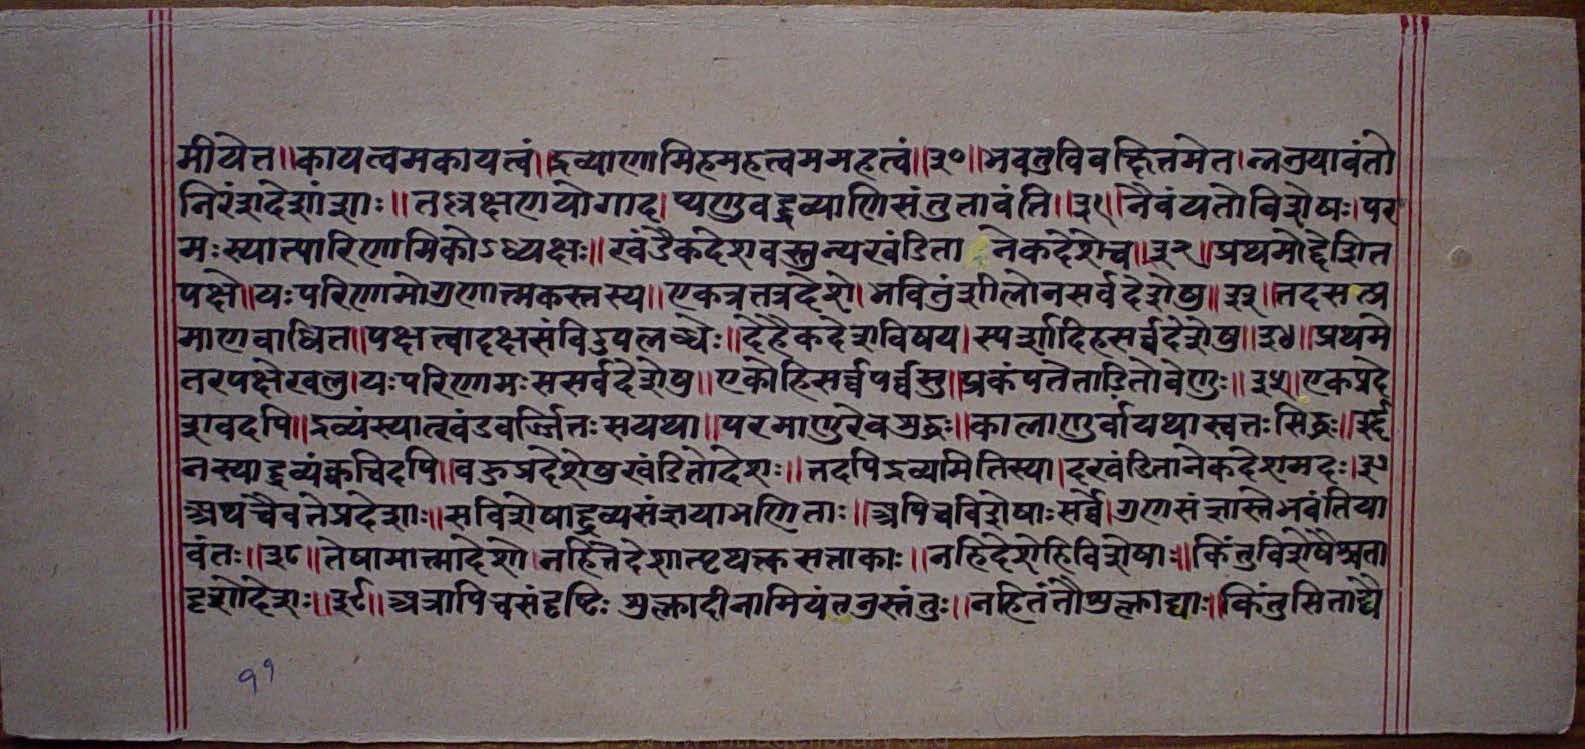 मीयेत॥कायत्वमकायत्वं॥द्रव्याणामिहमहत्वममहत्वं॥३०॥भवतुविवक्षितमेत।न्ननुयावंतो
निरंशदेशांशाः॥तल्लक्षणयोगाद।प्यणुवद्द्रव्याणिसंतुतावंति॥३१॥नैवंयतोविशेषः।पर
मःस्यात्पारिणामिकोऽध्यक्षः॥खंडैकदेशवस्तुन्यखंडिता नेकदेशेच॥३२॥प्रथमोद्देशित
पक्षे॥यःपरिणामोगुणात्मकस्तस्य॥एकत्रतत्रदेशे।भवितुंशीलोनसर्वदेशेषु॥३३॥तदसत्प्र
माणबाधित॥पक्षत्वादक्षसंविदुपलब्धेः॥देहैकदेशविषय।स्पर्शादिहसर्वदेशेषु॥३४॥प्रथमे
तरपक्षेखलु।यःपरिणमःससर्वदेशेषु॥एकोहिसर्व्वपर्व्वस्तु॥प्रकंपतेताडितोवेणुः॥३५॥एकप्रदे
शवदपि॥द्रव्यंस्यात्खंडवर्ज्जितःसयथा॥परमाणुरेवशुद्धः॥कालाणुर्वायथास्वतःसिद्धः॥३६
नस्याद्द्रव्यंक्वचिदपि॥बहुप्रदेशेषुखंडितोदेशः॥तदपिद्रव्यमितिस्या।दखंडितानेकदेशमदः।३७
अथचैवतेप्रदेशाः॥सविशेषाद्द्रव्यसंज्ञयाभणिताः॥अपिचविशेषाःसर्व्वे।गुणसंज्ञास्तेभवंतिया
वंतः॥३८॥तेषामात्मादेशो।नहितेदेशात्पृथक्त्कसत्ताकाः॥नहिदेशेहिविशेषाः॥किंतुविशेषैश्चता
दृशोदेशः॥३९॥अत्रापिचसंदृष्टिः शुक्लादीनामियंतनुस्तंतुः॥नहितंतौशुक्लाद्याः॥किंतुसिताद्यै
११